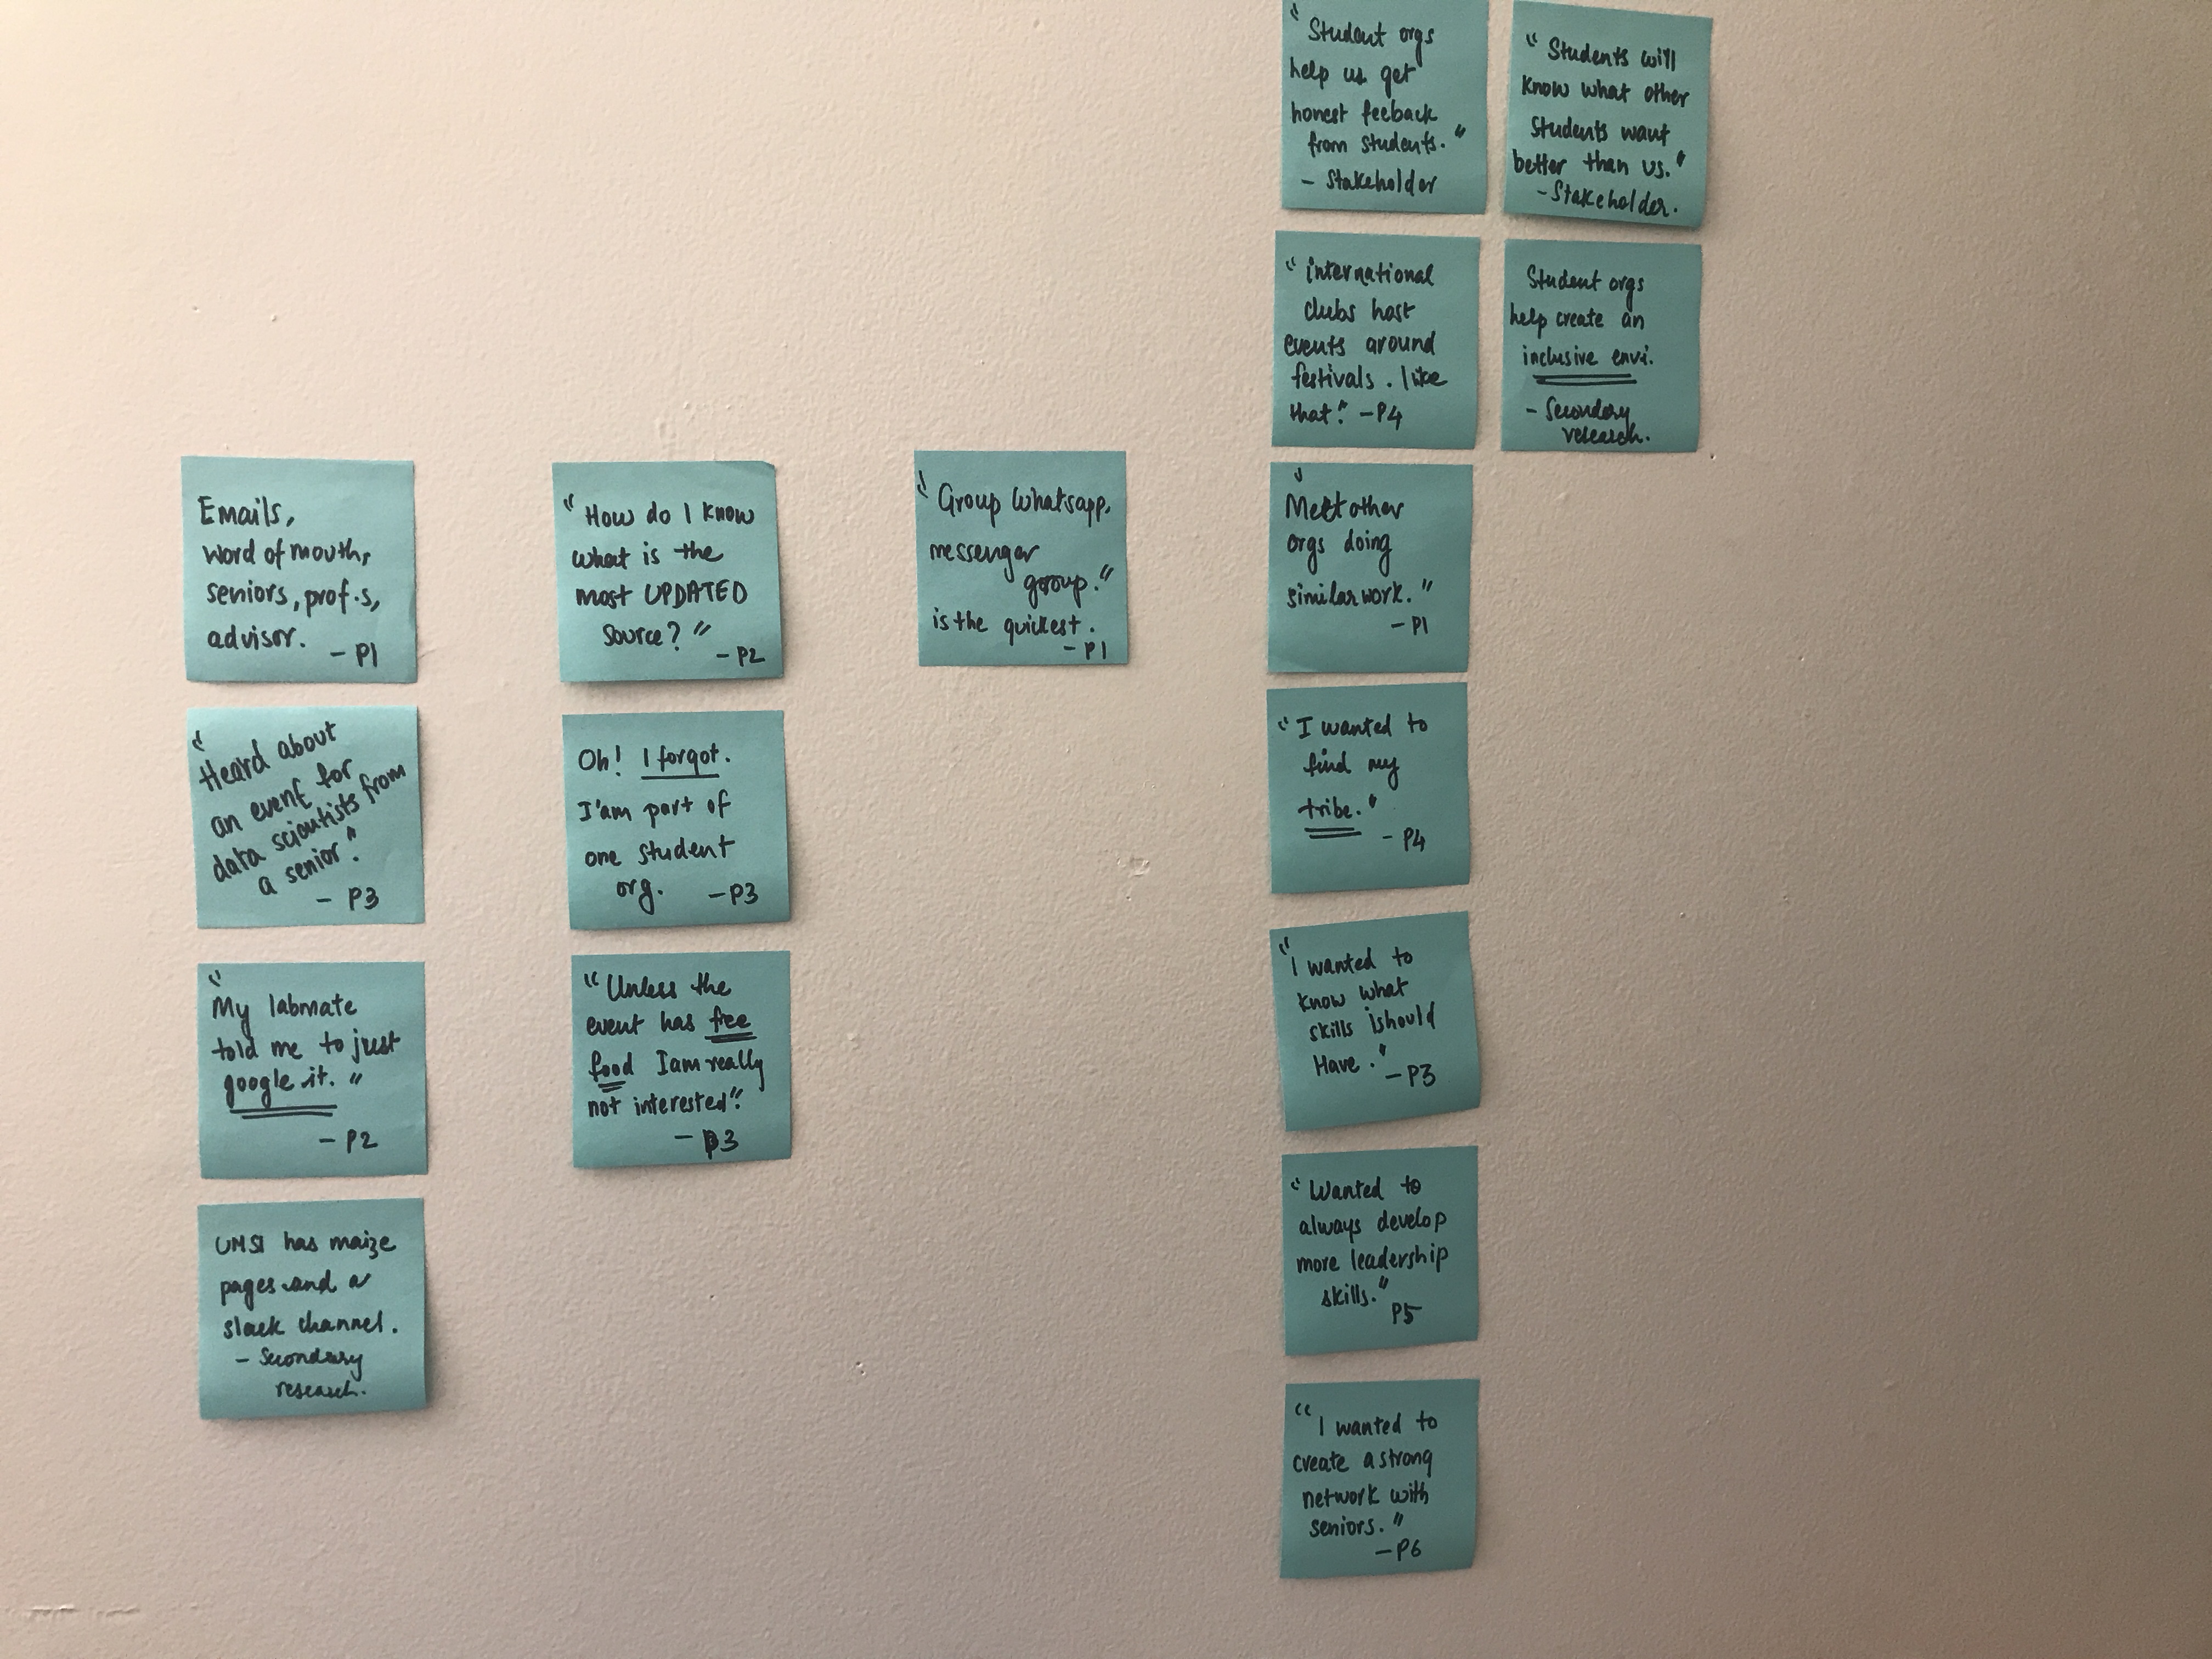 Emails,
word of mouth,
seniors, prof.s,
advisor. - P1
"Heard about
an event for
data scientists from
a senior."
- P3
"My labmate
told me to just
google it."
- P2
UMSI has maize
pages and a
slack channel.
- Secondary
research.
"How do I know
what is the
most UPDATED
source?"
- P2
Oh! I forgot.
I'am part of
one student
org. - P3
"Unless the
event has free
food I am really
not interested".
- P3
"Group Whatsapp,
messenger
group."
is the quickest.
- P1
"Student orgs
help us get
honest feeback
from students."
- Stakeholder
"international
clubs host
events around
festivals. I like
that". - P4
"Meet other
orgs doing
similar work."
- P1
"I wanted to
find my
tribe."
- P4
"I wanted to
know what
skills ishould
Have."
- P3
"Wanted to
always develop
more leadership
skills."
P5
"I wanted to
create a strong
network with
seniors."
- P6
"Students will
know what other
students want
better than us."
- Stakeholder.
Student orgs
help create an
inclusive envi.
- Secondary
research.